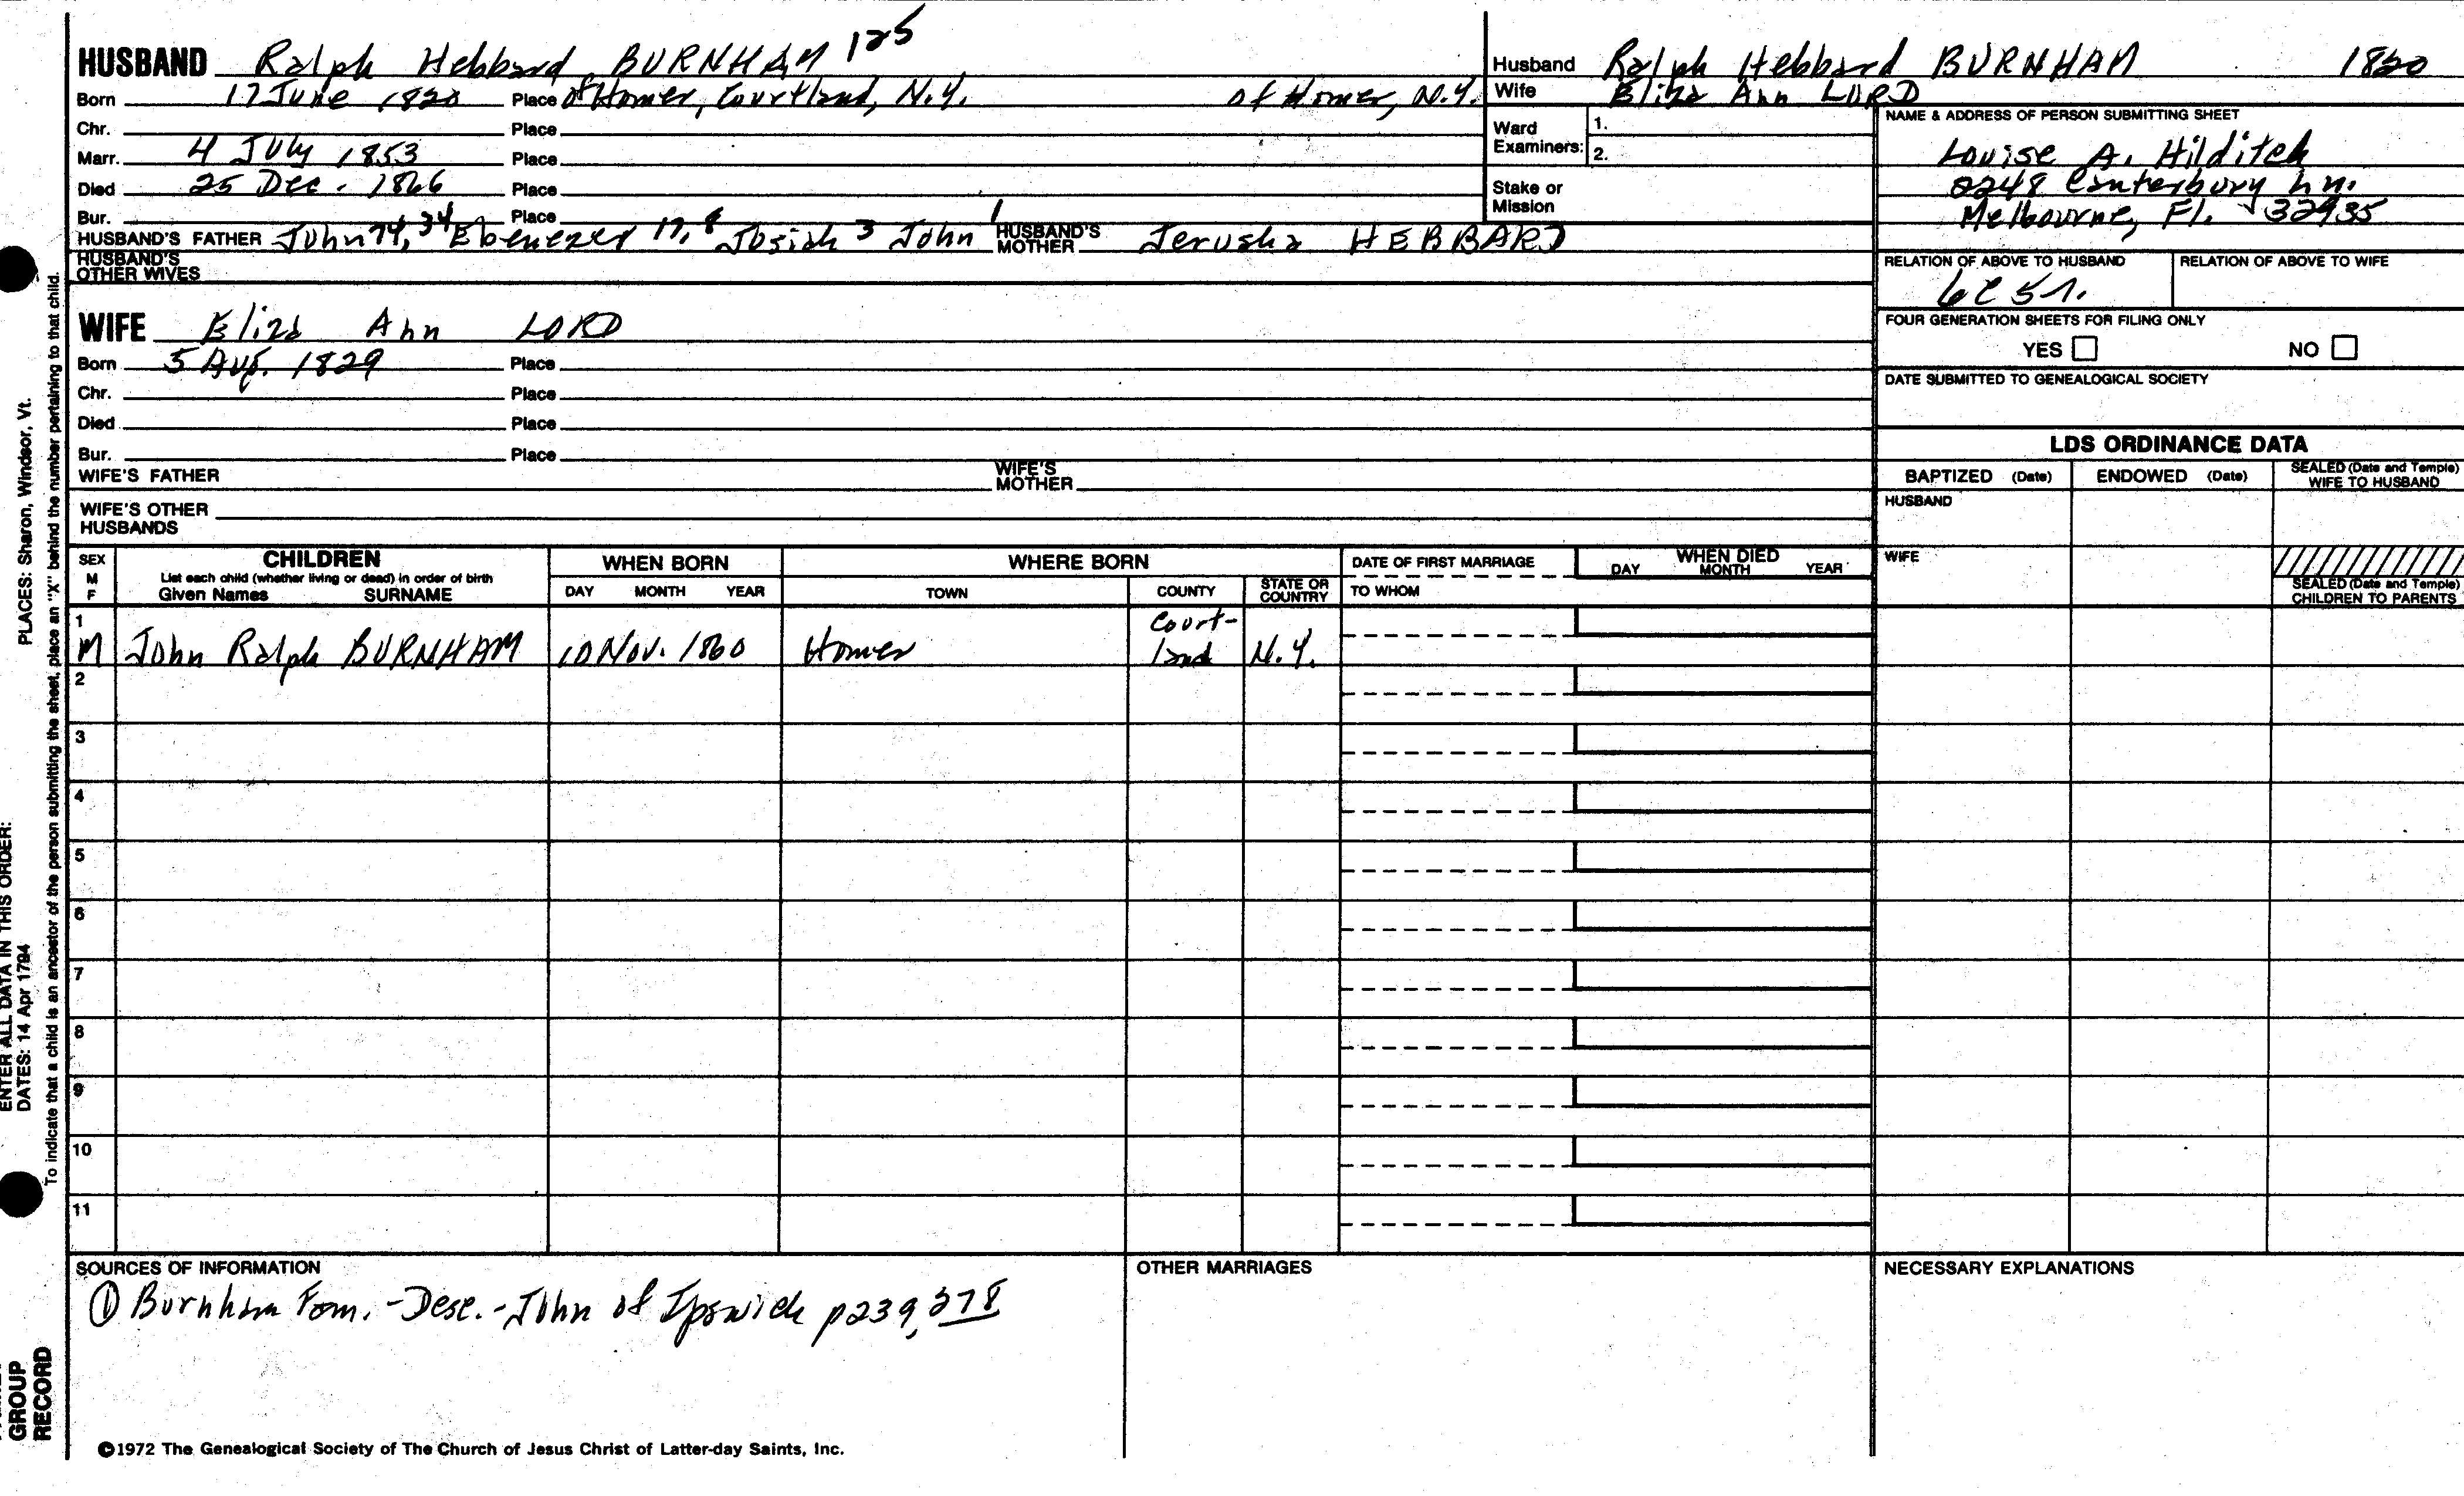 HUSBAND Ralph Hebbard BURNHAM 125
Born 17 June 1820 Place of Homer, Courtland, N.Y. of Homer, N.Y.
Chr. Place
Marr. 4 July 1853 Place
Died 25 Dec. 1866 Place
Bur. Place
HUSBAND'S FATHER John 74, 34 Ebenezer 17, 8 Josiah 3 John 1 HUSBAND'S MOTHER Jerusha HEBBARD
HUSBAND'S OTHER WIVES
WIFE Eliza Ann LORD
Born 5 Aug. 1829 Place
Chr. Place
Died Place
Bur. Place
WIFE'S FATHER WIFE'S MOTHER
WIFE'S OTHER HUSBANDS
Husband Ralph Hebbard BURNHAM 1820
Wife Eliza Ann LORD
Ward Examiners: 1.
2.
Stake or Mission
NAME & ADDRESS OF PERSON SUBMITTING SHEET
Louise A. Hilditch
2248 Canterbury Ln.
Melbourne, Fl. 32935
RELATION OF ABOVE TO HUSBAND RELATION OF ABOVE TO WIFE
6C5r.
FOUR GENERATION SHEETS FOR FILING ONLY
YES NO
DATE SUBMITTED TO GENEALOGICAL SOCIETY
LDS ORDINANCE DATA
BAPTIZED (Date) ENDOWED (Date) SEALED (Date and Temple) WIFE TO HUSBAND
HUSBAND
WIFE
SEALED (Date and Temple) CHILDREN TO PARENTS
SEX M F
CHILDREN
List each child (whether living or dead) in order of birth
Given Names SURNAME
WHEN BORN
DAY MONTH YEAR
WHERE BORN
TOWN COUNTY STATE OR COUNTRY
DATE OF FIRST MARRIAGE
TO WHOM
WHEN DIED
DAY MONTH YEAR
1
M John Ralph BURNHAM 10 Nov. 1860 Homer Court-land N.Y.
2
3
4
5
6
7
8
9
10
11
SOURCES OF INFORMATION
① Burnham Fam. - Desc. - John of Ipswich p239, 378
OTHER MARRIAGES
NECESSARY EXPLANATIONS
©1972 The Genealogical Society of The Church of Jesus Christ of Latter-day Saints, Inc.
GROUP
RECORD
ENTER ALL DATA IN THIS ORDER:
DATES: 14 Apr 1794
PLACES: Sharon, Windsor, Vt.
To indicate that a child is an ancestor of the person submitting the sheet, place an "X" behind the number pertaining to that child.